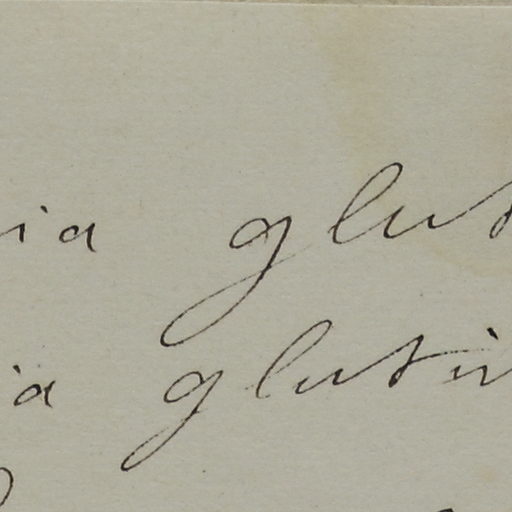 ia glut
ia glutin